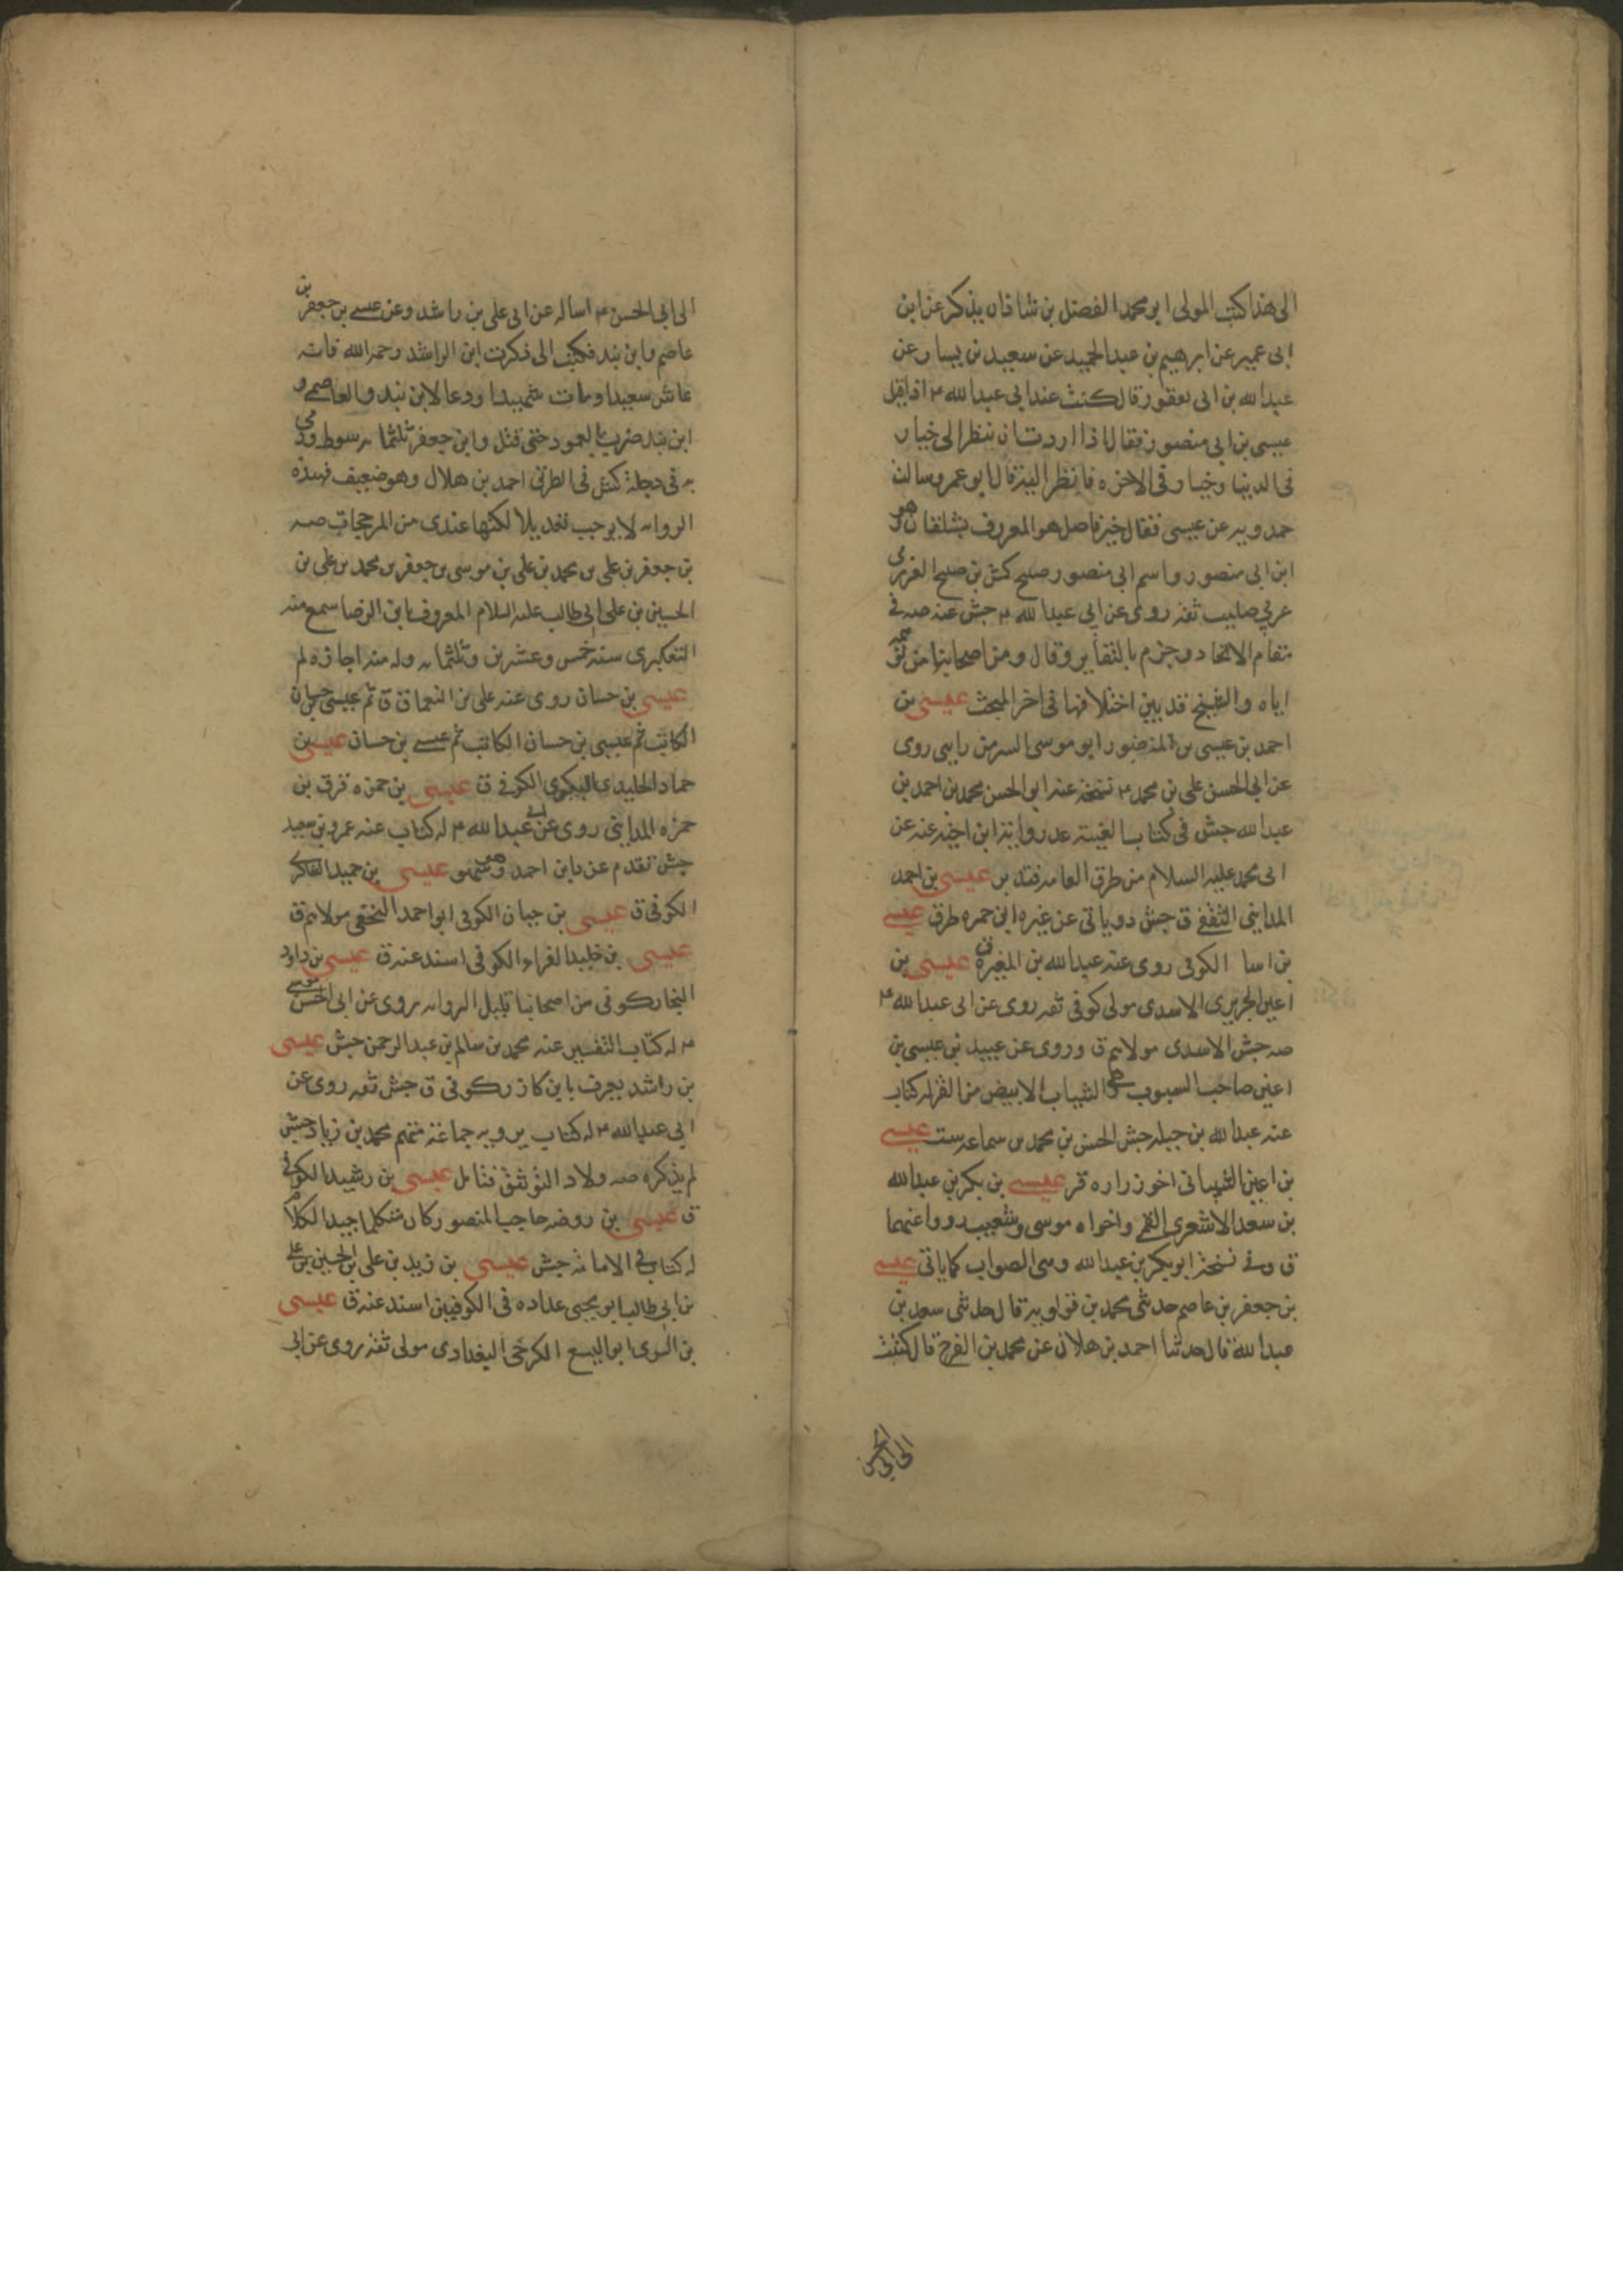 الى هذا كتب المولى ابو محمد الفضل بن شاذان يذكر عن ابن
ابى عمير عن ابرهيم بن عبد الحميد عن سعيد بن يسار وعن
عبد الله بن ابى يعفور قال كنت عند ابى عبد الله ع اذ اقبل
عيسى بن ابى منصور فقال اذا اردت ان تنظر الى خيار
فى الدنيا وخيار فى الاخره فانظر اليه قال ابو عمرو سالت
حمدويه عن عيسى فقال خير فاضل هو المعروف بشلقان وهو
ابن ابى منصور واسم ابى منصور صبيح كش بن صبيح العزرمى
عربى صليب ثقه روى عن ابى عبد الله ع جش عنه صه فى
مقام الاتحاد وجزم بالتغاير وقال ومن اصحابنا من
اياه والشيخ قد بين اختلافها فى اخر المبحث عيسى بن
احمد بن عيسى بن المنصور ابو موسى السر من رايى روى
عن ابى الحسن على بن محمد ع نسخة عنه ابو الحسن محمد بن احمد بن
عبد الله جش فى كتاب الغيبة عد روايته ابن اخيه عنه عن
ابى محمد عليه السلام من طرق العامه فتدبر عيسى بن احمد
المداينى الثقفى ق جش دوياتى عن غيره ابن حمزه طرق عيسى
بن اسا الكوفى روى عنه عبد الله بن المغيرة ق عيسى بن
اعين الجريرى الاسدى مولى كوفى ثقه روى عن ابى عبد الله ع
صه جش الاسدى مولاهم ق وروى عن عبيد بن عيسى بن
اعين صاحب السبوب وهى الثياب الابيض من القز له كتاب
عنه عبد الله بن جبله جش الحسن بن محمد بن سماعه ست عيسى
بن اعين الشيبانى اخو زراره قر عيسى بن بكر بن عبد الله
بن سعد الاشعرى القمى واخواه موسى وشعيب رووا عنهما
ق وفى نسخة ابو بكر بن عبد الله وهى الصواب كما ياتى عيسى
بن جعفر بن عاصم حدثنى محمد بن قولويه قال حدثنى سعد بن
عبد الله قال حدثنا احمد بن هلال عن محمد بن الفرج قال كتبت
الى ابى الحسن
الى ابى الحسن ع اساله عن ابى على بن راشد وعن عيسى بن جعفر بن
عاصم وابن بند فكتب الى ذكرت ابن الراشد رحمه الله فانه
عاش سعيدا ومات شهيدا ودعا لابن بند والعاصمى و
ابن بند ضرب بالعمود حتى قتل وابن جعفر ثلثمائه سوط ورمى
به فى دجلة كش فى الطريق احمد بن هلال وهو ضعيف فهذه
الروايه لا يوجب تعديلا لكنها عندى من المرجحات صه
بن جعفر بن على بن محمد بن على بن موسى بن جعفر بن محمد بن على بن
الحسين بن على ابى طالب عليه السلام المعروف بابن الرضا سمع منه
التعكبرى سنه خمس وعشرين وثلثمائه وله منه اجازه لم
عيسى بن حسان روى عنه على بن النعمان ق ثم عيسى بن حسان
الكاتب ثم عيسى بن حسان الكاتب ثم عيسى بن حسان عيسى بن
حماد الخليدى البكرى الكوفى ق عيسى بن حمزه فرق بن
حمزه المداينى روى عن ابى عبد الله ع له كتاب عنه عمرو بن سعيد
جش تقدم عن دابن احمد وهو عيسى بن حميد الفاكر
الكوفى ق عيسى بن حيان الكوفى ابو احمد النخعى مولاهم ق
عيسى بن خليد الفراء الكوفى اسند عنه ق عيسى بن داود
النجار كوفى من اصحابنا قليل الروايه روى عن ابى الحسن موسى
ع له كتاب التفسير عنه محمد بن سالم بن عبد الرحمن جش عيسى
بن راشد يعرف بابن كازر كوفى ق جش ثقه روى عن
ابى عبد الله ع له كتاب يرويه جماعة منهم محمد بن زياد جش
لم يذكره صه ولا د التوثيق فتامل عيسى بن رشيد الكوفى
ق عيسى بن روضه حاجب المنصور كان متكلما جيد الكلام
له كتاب فى الامامه جش عيسى بن زيد بن على بن الحسين بن على
بن ابى طالب ابو يحيى عداده فى الكوفيين اسند عنه ق عيسى
بن السرى ابو اليسع الكرخى البغدادى مولى ثقه روى عن ابى